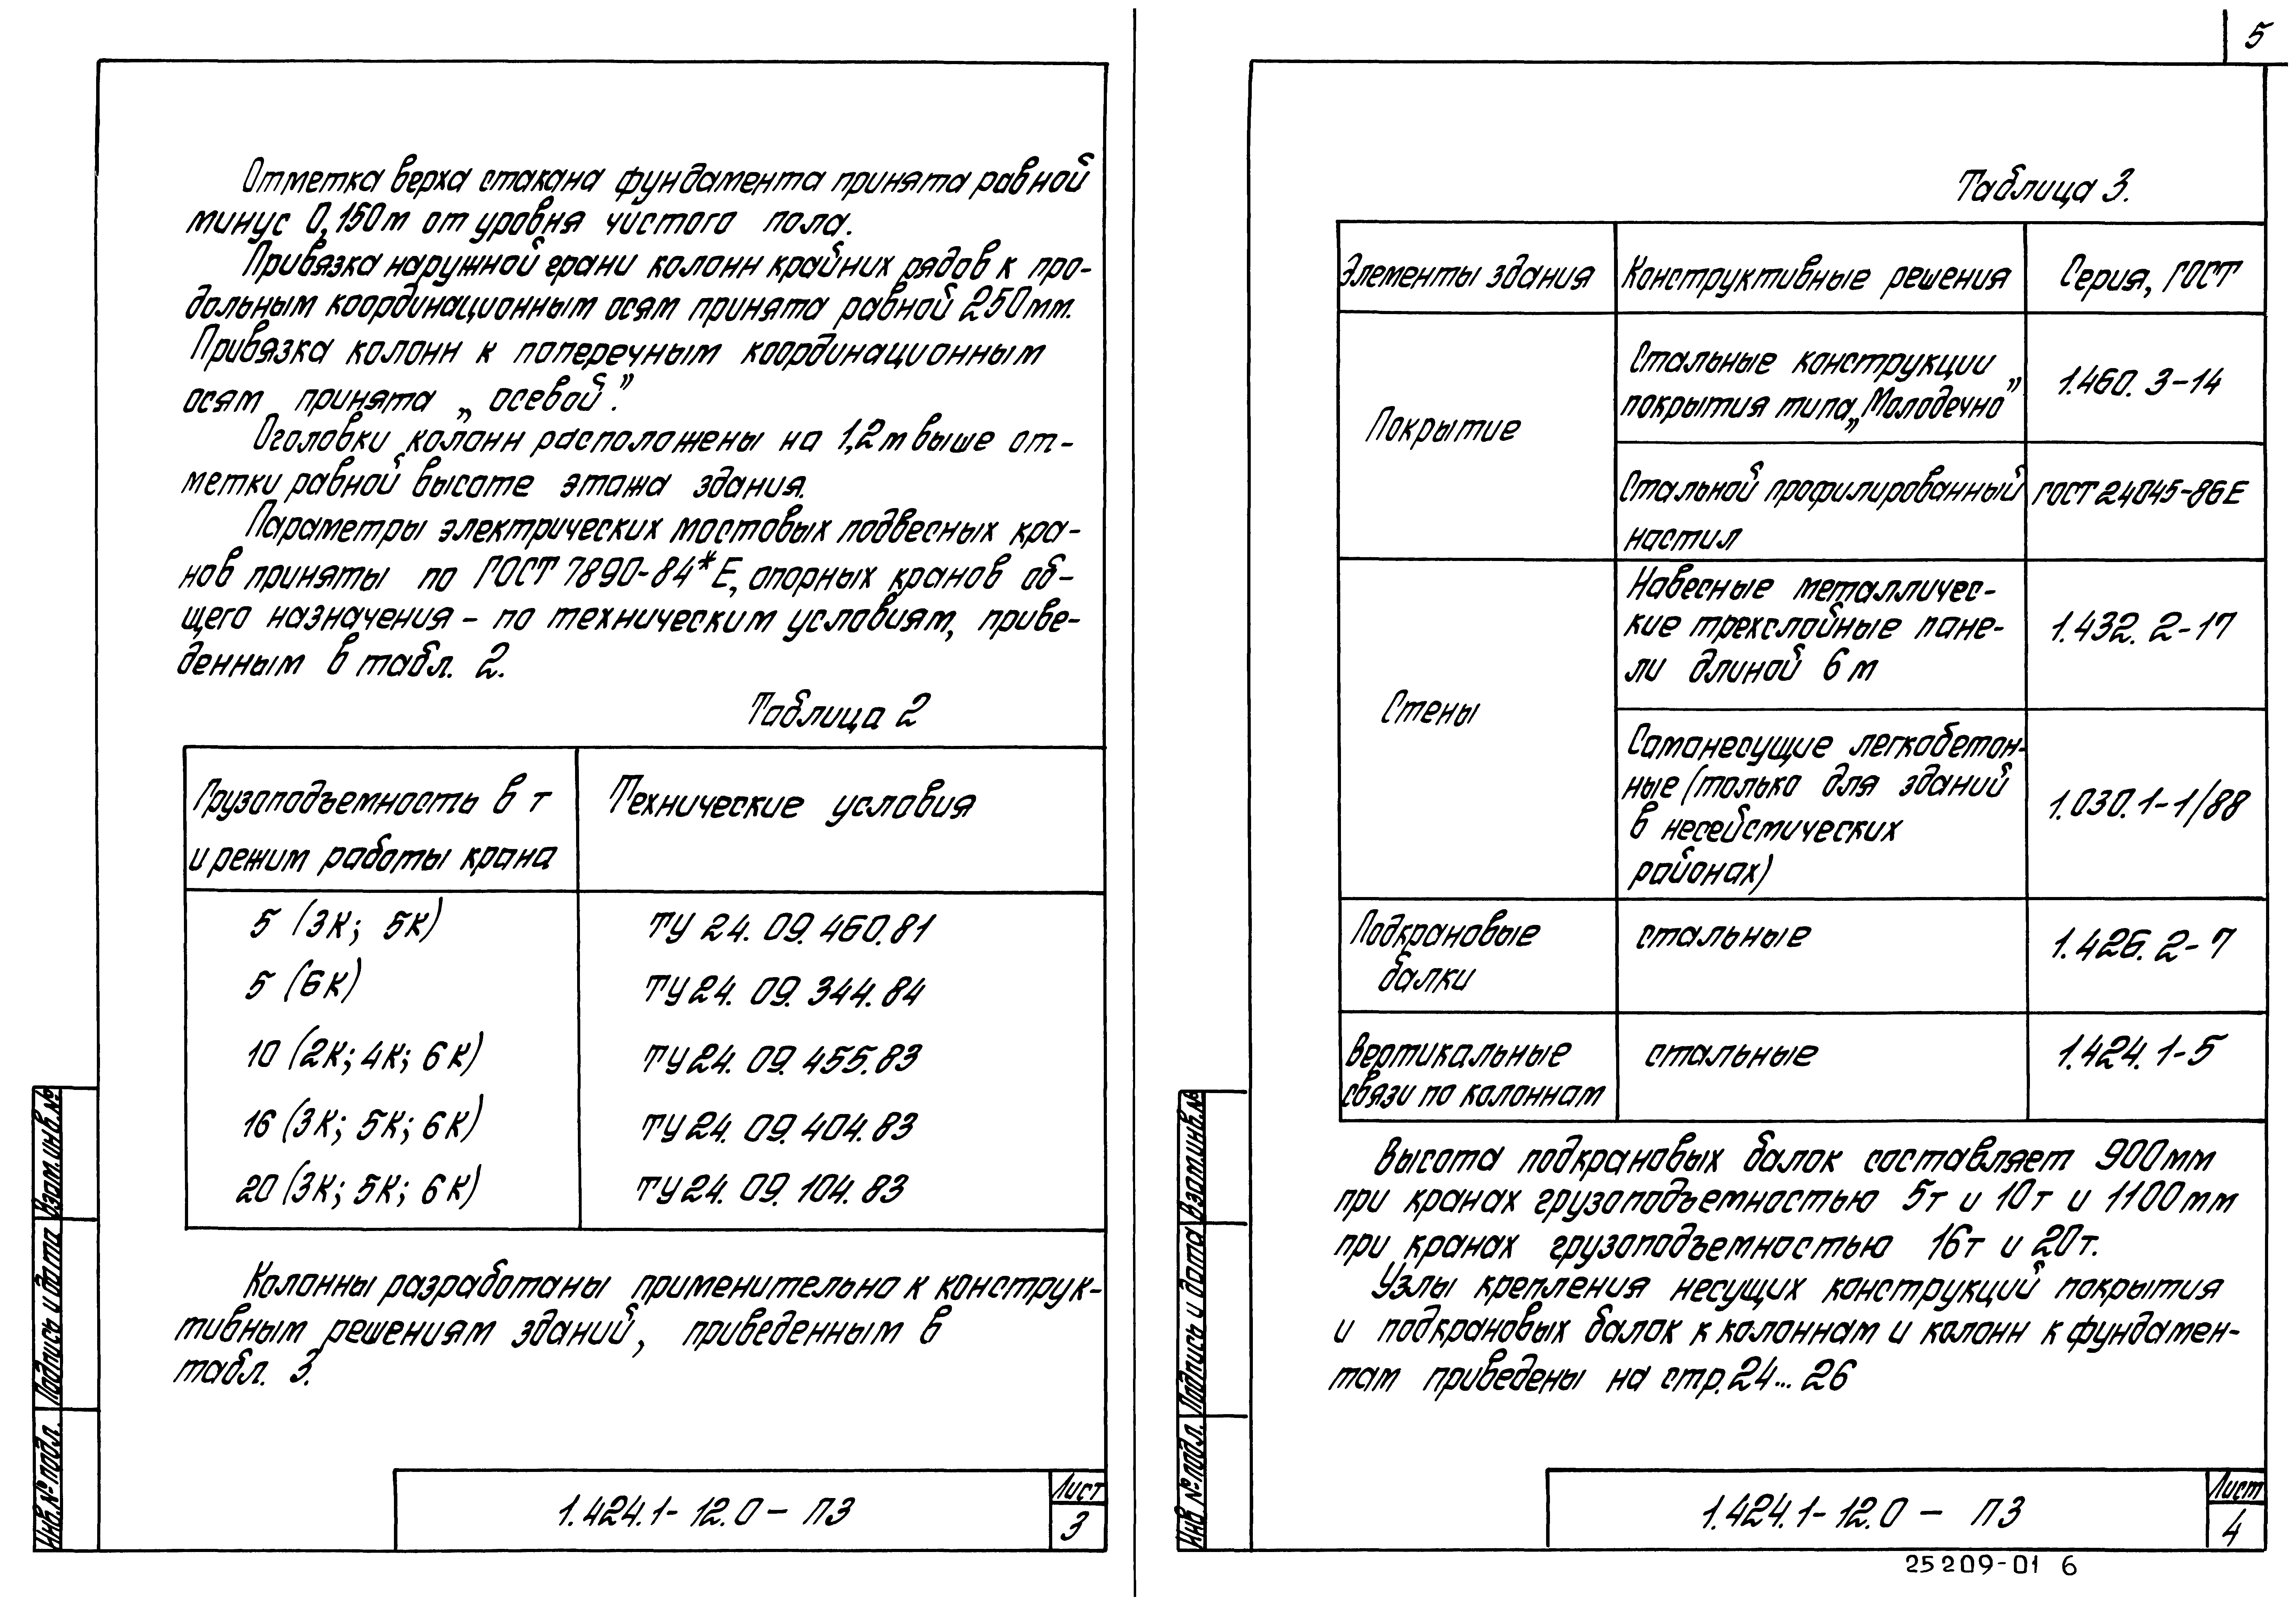 Отметка верха стакана фундамента принята равной
минус 0,150м от уровня чистого пола.
Привязка наружной грани колонн крайних рядов к про-
дольным координационным осям принята равной 250мм.
Привязка колонн к поперечным координационным
осям принята „осевой".
Оголовки колонн расположены на 1,2м выше от-
метки равной высоте этажа здания.
Параметры электрических мостовых подвесных кра-
нов приняты по ГОСТ 7890-84*Е, опорных кранов об-
щего назначения - по техническим условиям, приве-
денным в табл. 2.
Таблица 2
Грузоподъемность в т
и режим работы крана
Технические условия
5 (3К; 5К) ТУ 24.09.460.81
5 (6К) ТУ24.09.344.84
10 (2К; 4К; 6К) ТУ24.09.455.83
16 (3К; 5К; 6К) ТУ24.09.404.83
20 (3К; 5К; 6К) ТУ24.09.104.83
Колонны разработаны применительно к конструк-
тивным решениям зданий, приведенным в
табл. 3.
Инв.№ подл. Подпись и дата Взам.инв.№
1.424.1-12.0 - ПЗ
Лист
3
5
Таблица 3.
Элементы здания Конструктивные решения Серия, ГОСТ
Покрытие
Стальные конструкции
покрытия типа „Молодечно"
1.460.3-14
Стальной профилированный
настил
ГОСТ 24045-86Е
Стены
Навесные металличес-
кие трехслойные пане-
ли длиной 6м
1.432.2-17
Самонесущие легкобетон-
ные (только для зданий
в несейсмических
районах)
1.030.1-1/88
Подкрановые
балки
стальные
1.426.2-7
Вертикальные
связи по колоннам
стальные
1.424.1-5
Высота подкрановых балок составляет 900мм
при кранах грузоподъемностью 5т и 10т и 1100мм
при кранах грузоподъемностью 16т и 20т.
Узлы крепления несущих конструкций покрытия
и подкрановых балок к колоннам и колонн к фундамен-
там приведены на стр.24...26
Инв.№ подл. Подпись и дата Взам.инв.№
1.424.1-12.0 - ПЗ
Лист
4
25209-01 6